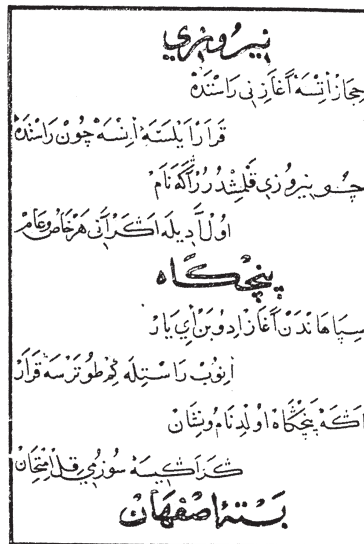 نيروزي
حجاز اتسه آغازني راستنده
قرار ايلسه انسه چون راستنده
چو نيروزي قلشدر آكه نام
اول آديله اكر آني هر خاص وعام
پنچكاه
سپاهاندن آغاز ادوبن اي يار
انوب راستيله كم طوترسه قرار
اكه پنچكاه اولدى نام ونشان
كر اكسه سوزمي قل امتحان
بستۀ اصفهان